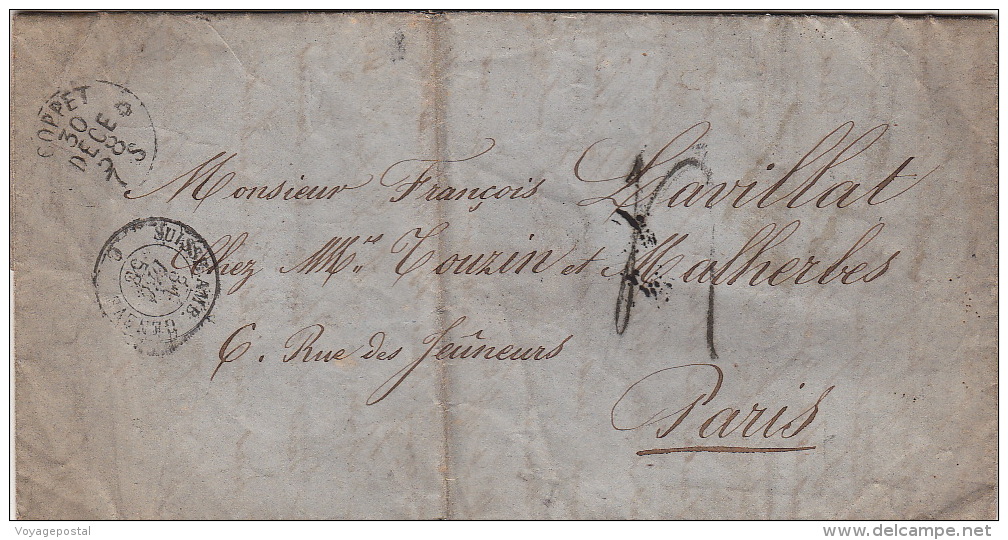 COPPET
30
DECE
Monsieur François Lavillat
SUISSE AMB. GENEVE
Chez MM.rs Touzin et Malherbes
6. Rue des Jeûneurs
Paris
Voyagepostal
www.delcampe.net